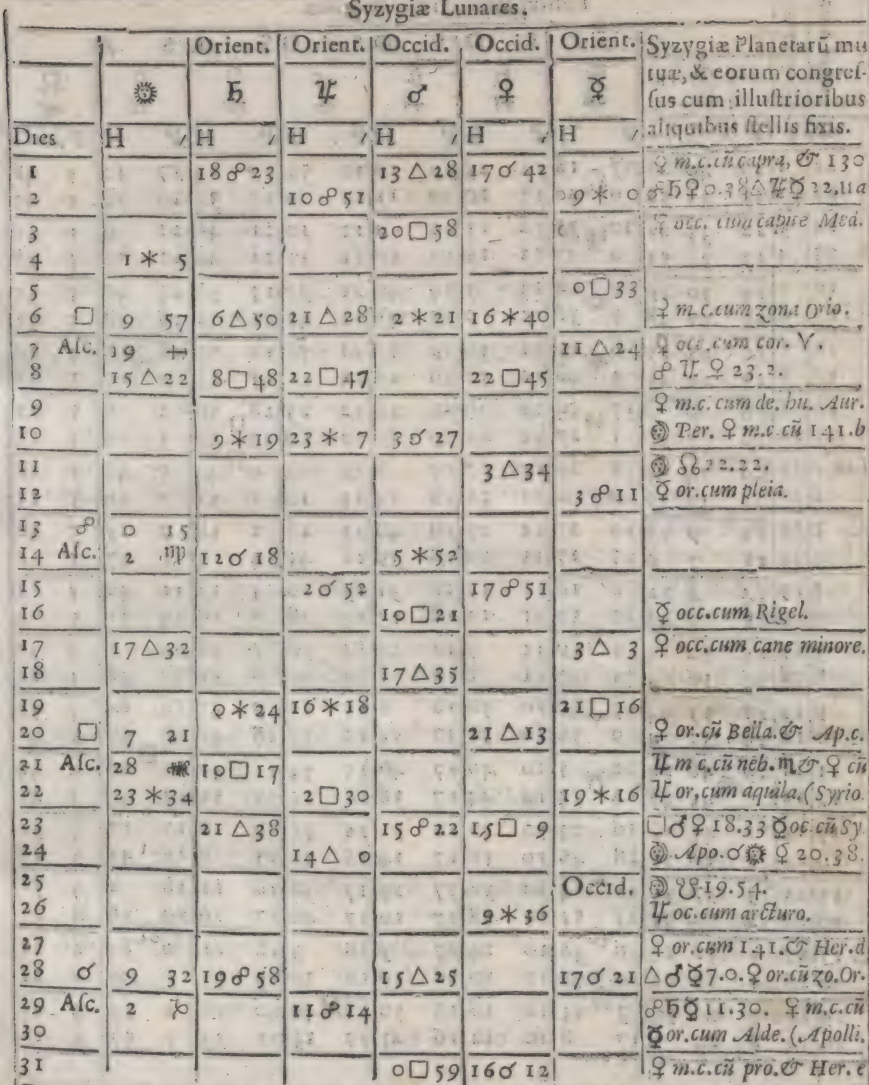 Syzygiæ Lunares.
Orient. Orient. Occid. Occid. Orient. Syzygiæ Planetarū mu
tuæ, & eorum congres-
☉ ♄ ♃ ♂ ♀ ☿ sus cum illustrioribus
Dies H ′ H ′ H ′ H ′ H ′ H ′ aliquibus stellis fixis.
1 18 ☍ 23 13 △ 28 17 ☌ 42 ♀ m.c.cū capra, & 130
2 10 ☍ 51 9 ⚹ 0 ☍ ♄ ♀ 0.38 △ ♃ ☿ 22,11 a
3 20 □ 58 occ. cum capite Med.
4 1 ⚹ 5
5 0 □ 33
6 □ 9 57 6 △ 50 21 △ 28 2 ⚹ 21 16 ⚹ 40 ♀ m.c.cum zona Orio.
7 Asc. 19 ♐ 11 △ 24 ♀ occ.cum cor. ♈.
8 15 △ 22 8 □ 48 22 □ 47 22 □ 45 ☍ ♃ ♀ 23.2.
9 ♀ m.c. cum de. hu. Aur.
10 9 ⚹ 19 23 ⚹ 7 3 ☌ 27 Per. ♀ m.c cū 141.b
11 3 △ 34 ☊ 22.22.
12 3 ☍ 11 ☿ or.cum pleia.
13 ☍ 0 15
14 Asc. 2 ♍ 12 ☌ 18 5 ⚹ 52
15 2 ☌ 52 17 ☍ 51
16 10 □ 21 ☿ occ.cum Rigel.
17 17 △ 32 3 △ 3 ♀ occ.cum cane minore.
18 17 △ 35
19 0 ⚹ 24 16 ⚹ 18 21 □ 16
20 □ 7 21 21 △ 13 ♀ or.cū Bella. & Ap.c.
21 Asc. 28 ♒ 10 □ 17 ♃ m c.cū neb. ♏ & ♀ cū
22 23 ⚹ 34 2 □ 30 19 ⚹ 16 ♃ or,cum aquila.(Syrio.
23 21 △ 38 15 ☍ 22 15 □ 9 □ ♂ ♀ 18.33 ☿ oc.cū Sy
24 14 △ 0 Apo. ☌ ☉ ☿ 20.38.
25 Occid. ☋ 19.54.
26 9 ⚹ 36 ♃ oc.cum arcturo.
27 ♀ or.cum 141. & Her.d
28 ☌ 9 32 19 ☍ 58 15 △ 25 17 ☌ 21 △ ♂ ☿ 7.0. ♀ or.cū zo.Or.
29 Asc. 2 ♑ 11 ☍ 14 ☍ ♄ ☿ 11.30. ♀ m.c.cū
30 ☿ or.cum Alde. (Apolli.
31 0 □ 59 16 ☌ 12 ♀ m.c.cū pro. & Her. e